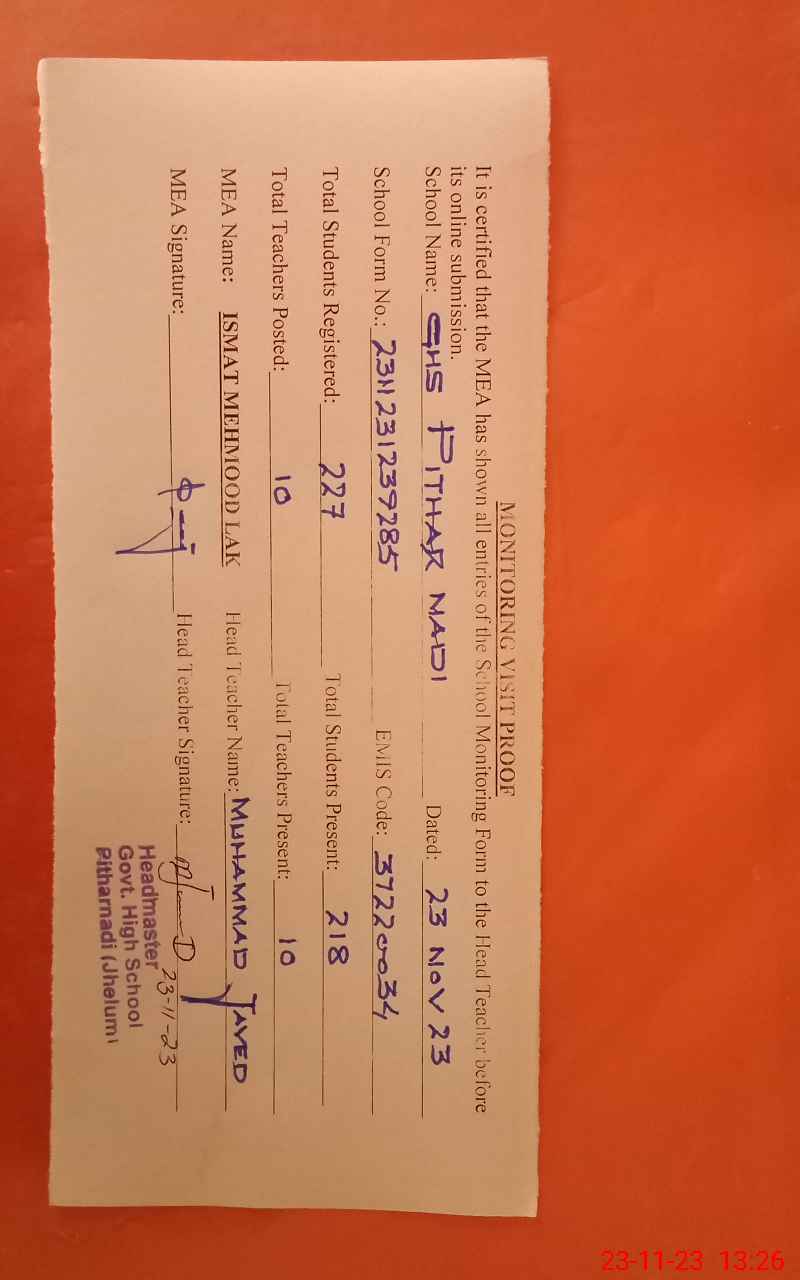 MONITORING VISIT PROOF
It is certified that the MEA has shown all entries of the School Monitoring Form to the Head Teacher before
its online submission.
School Name: GHS PITHAR NADI Dated: 23 NOV 23
School Form No.: 2311231239285 EMIS Code: 37220034
Total Students Registered: 227 Total Students Present: 218
Total Teachers Posted: 10 Total Teachers Present: 10
MEA Name: ISMAT MEHMOOD LAK Head Teacher Name: MUHAMMAD JAVED
MEA Signature: Head Teacher Signature:
23-11-23
Headmaster
Govt. High School
Pitharnadi (Jhelum)
23-11-23 13:26